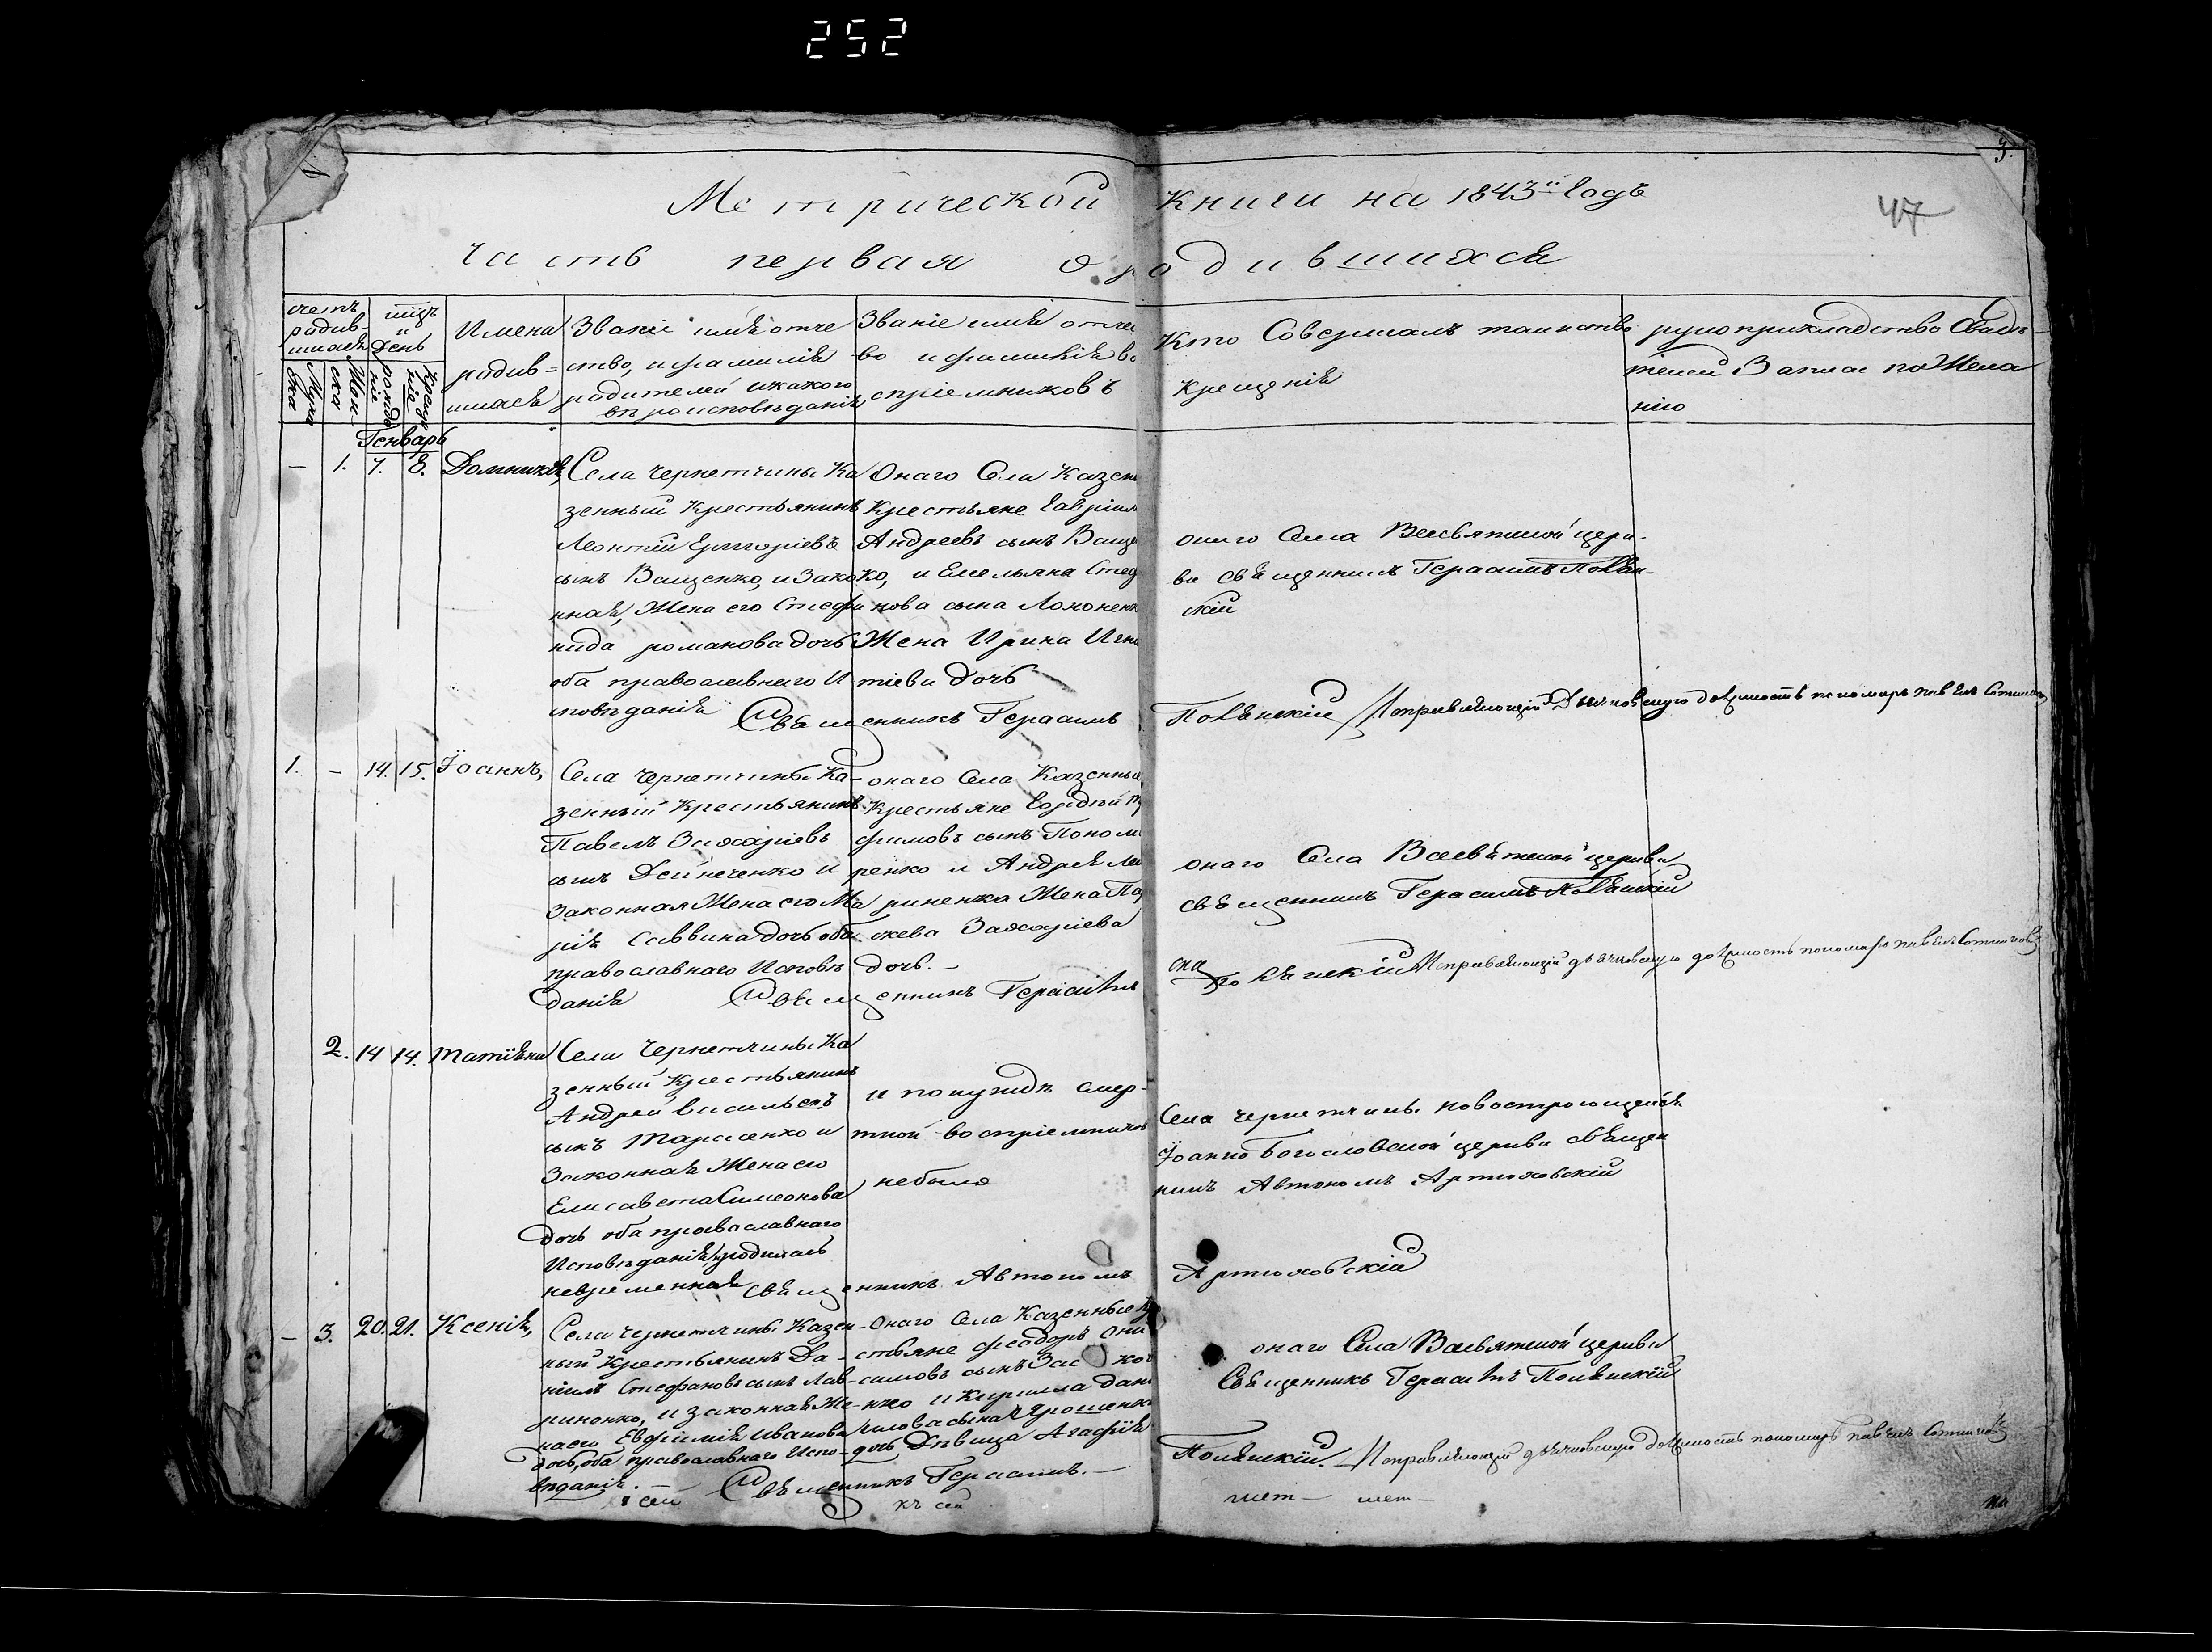 252
3.
47
Метрической книги на 1843й Годъ
часть первая о родившихся
счетъ родив-шихся
Муже ска
Жен-ска
мцъ и День
рожденіе
крещеніе
Имена родив=шихся
Званіе имя отче
ство, и фамилія
родителей и какого
вѣроисповѣданія,
Званіе имя отчес
во и фамилія во
спріемниковъ
Кто Совершалъ таинство
крещенія
рукоприкладство Свидѣ-
телей Записи по Жела
нію
Генварь
— 1. 7. 8. Домникія,
Села Чернетчины Ка
зенный Крестьянинъ
Леонтій Григоріевъ
сынъ Ващенко, и Зако
нная, Жена его Стефа
нида романова дочь
оба православнаго И
сповѣданія
Онаго Села Казен
Крестьяне Гавріил
Андреевъ сынъ Ващен
ко, и Емельяна Стеф
нова сына Лохонен
Жена Ирина Игна
тіева дочь
онаго Села Всесвятской церк-
ви священникъ Герасимъ Полян-
скій
Священникъ Герасимъ Полянскій Исправляющій Дьячковскую должность пономарь Павелъ
1. — 14. 15. Іоаннъ,
Села Чернетчины Ка-
зенный Крестьянинъ
Павелъ Захаріевъ
сынъ Дейнеченко и
Законная Жена его Ма
рія Саввина дочь оба
православнаго Исповѣ
данія
онаго Села Казенные
Крестьяне Гордѣй Тр
фимовъ сынъ Поном
ренко и Андрея Ла
риненка Жена Па
скева Захаріева
дочь. —
онаго Села Всесвятской церкви
священникъ Герасимъ Полянскій
Священникъ Герасимъ Полянскій Исправляющій дьячковскую должность пономарь Павелъ
2. 14 14. Татіяна
Села Чернетчины Ка
зенный Крестьянинъ
Андрей Васильевъ
сынъ Тарасенко и
Законная Жена его
Елисавета Симеонова
дочь оба православнаго
Исповѣданія, родилась
невременная
и по нуждѣ смер-
тной воспріемниковъ
небыло
Села Чернетчины новостроющейся
Іоанно Богословской церкви священ
никъ Автономъ Артюховскій
священникъ Автономъ Артюховскій
— 3. 20. 21. Ксенія,
Села Чернетчины Казен-
ный Крестьянинъ Да-
ніилъ Стефановъ сынъ Лав-
риненко, и законная Же-
на его Евфимія Иванова
дочь, оба православнаго Испо-
вѣданія.
Онаго Села Казенные Кр
стьяне Феодоръ Они
симовъ сынъ
нко и Кирилла Дани
лова сына Ярошенка
дочь Дѣвица Агафія
онаго Села Всесвятской церкви
Священникъ Герасимъ Полянскій
Священникъ Герасимъ. — Полянскій. Исправляющій дьячковскую должность пономарь Павелъ
къ сей